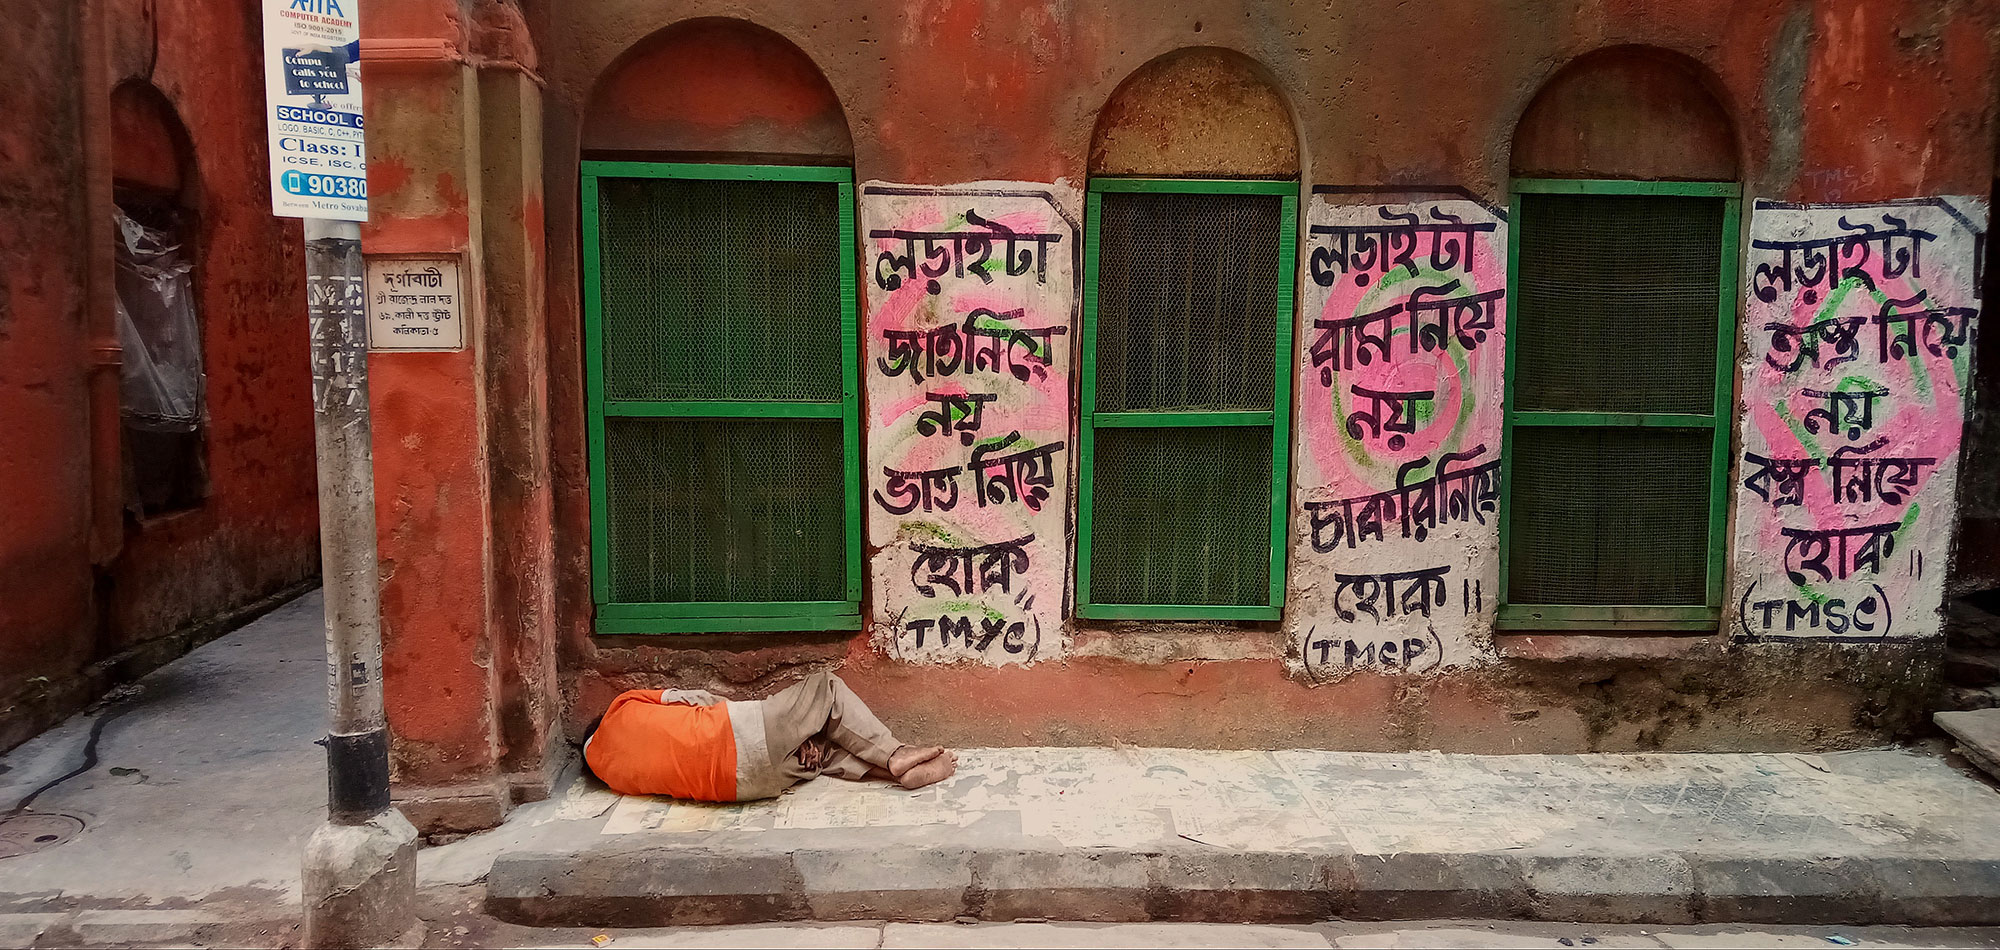 COMPUTER ACADEMY
ISO 9001-2015
GOVT OF INDIA REGISTERED
Compu
calls you
to school
We offer
SCHOOL C
LOGO, BASIC, C, C++, PYT
Class: I
ICSE, ISC, C
90380
Between Metro Sovaba
দুর্গাবাটী
শ্রী রাজেন্দ্র লাল দত্ত
৬৯, কালী দত্ত স্ট্রীট
কলিকাতা-৫
লড়াইটা
জাতনিয়ে
নয়
ভাত নিয়ে
হোক॥
(TMYC)
লড়াইটা
রাম নিয়ে
নয়
চাকরিনিয়ে
হোক॥
(TMCP)
TMC
লড়াইটা
অস্ত্র নিয়ে
নয়
বস্ত্র নিয়ে
হোক॥
(TMSC)